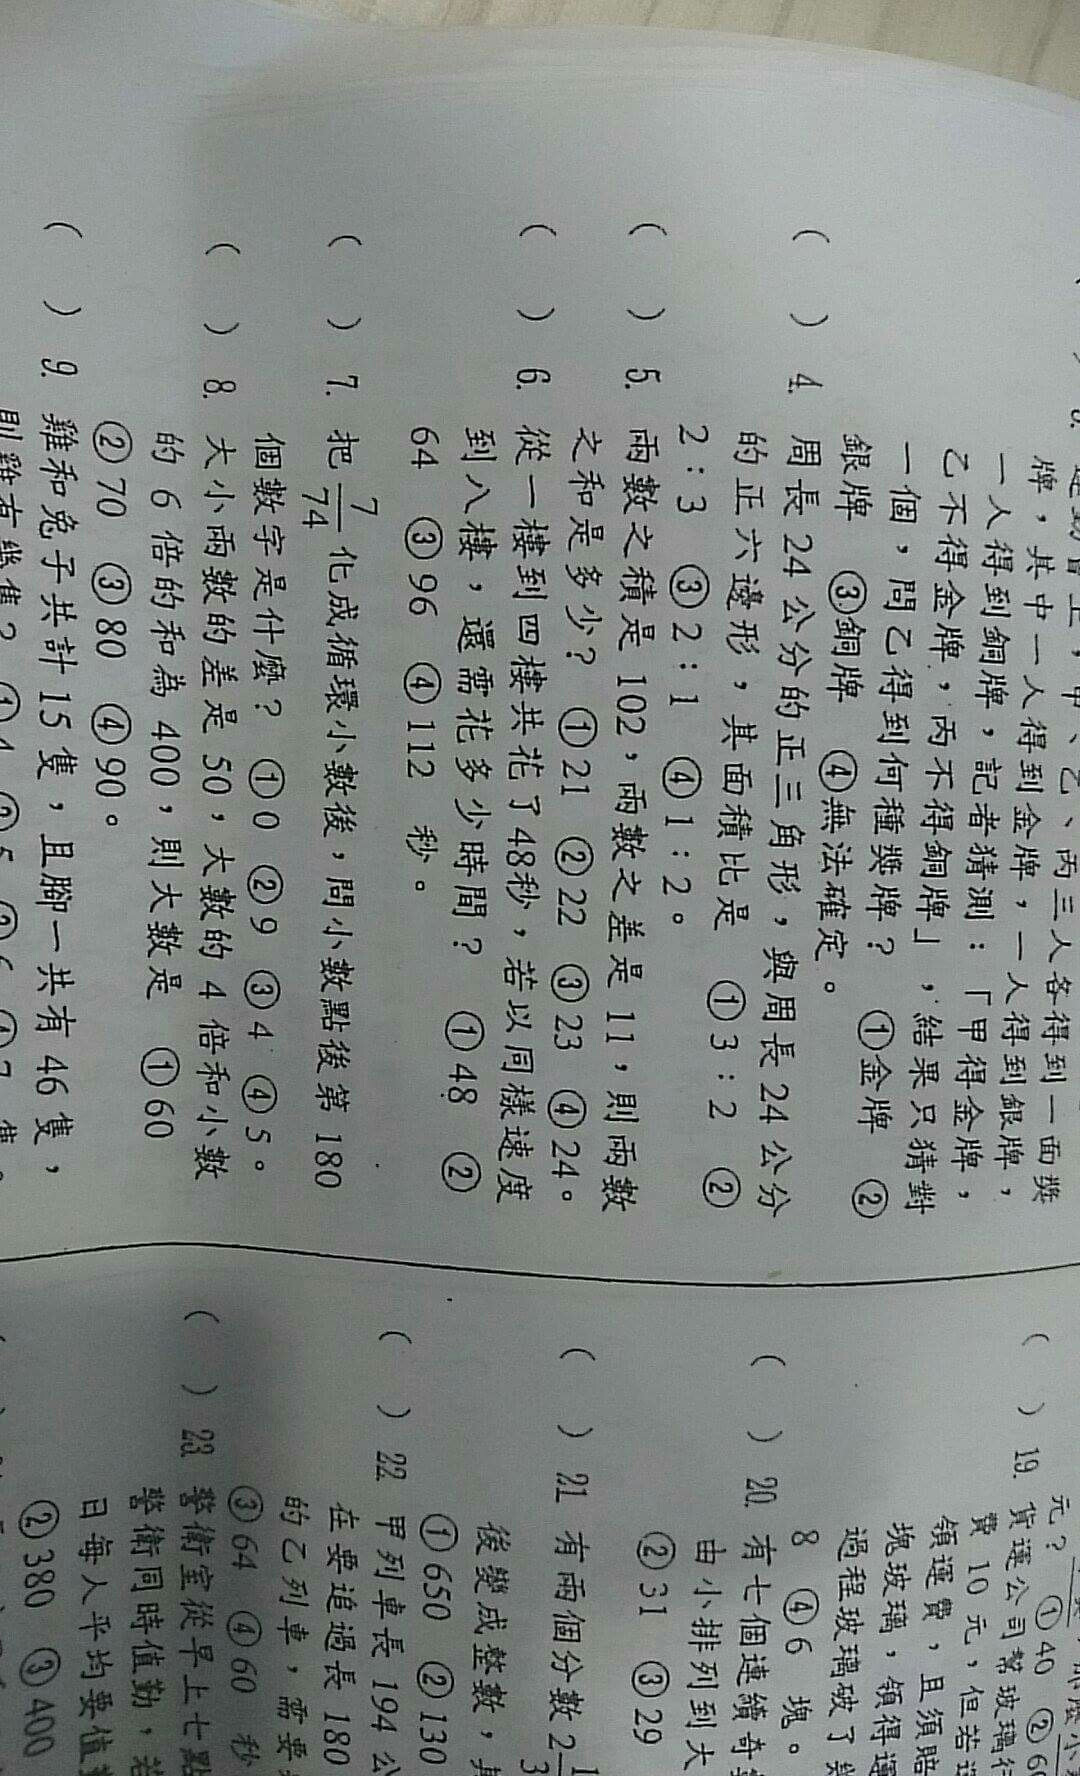 牌，其中一人得到金牌，一人得到銀牌，
一人得到銅牌，記者猜測：「甲得金牌，
乙不得金牌，丙不得銅牌」，結果只猜對
一個，問乙得到何種獎牌？ ①金牌 ②
銀牌 ③銅牌 ④無法確定。
( ) 4. 周長 24 公分的正三角形，與周長 24 公分
的正六邊形，其面積比是 ①3：2 ②
2：3 ③2：1 ④1：2。
( ) 5. 兩數之積是 102，兩數之差是 11，則兩數
之和是多少？ ①21 ②22 ③23 ④24。
( ) 6. 從一樓到四樓共花了48秒，若以同樣速度
到八樓，還需花多少時間？ ①48 ②
64 ③96 ④112 秒。
( ) 7. 把 7/74 化成循環小數後，問小數點後第 180
個數字是什麼？ ①0 ②9 ③4 ④5。
( ) 8. 大小兩數的差是 50，大數的 4 倍和小數
的 6 倍的和為 400，則大數是 ①60
②70 ③80 ④90。
( ) 9. 雞和兔子共計 15 隻，且腳一共有 46 隻，
則雞有幾隻？
元？ ①40
( ) 19. 貨運公司幫玻璃行
費 10 元，但若
領運費，且須賠
塊玻璃，領得運
過程玻璃破了
8 ④6 塊。
( ) 20. 有七個連續奇
由小排列到大
②31 ③29
( ) 21. 有兩個分數 2
後變成整數，其
①650 ②130
( ) 22. 甲列車長 194 公
在要追過長 180
的乙列車，需要
③64 ④60 秒
( ) 23. 警衛室從早上七點
警衛同時值勤，若
日每人平均要值
②380 ③400